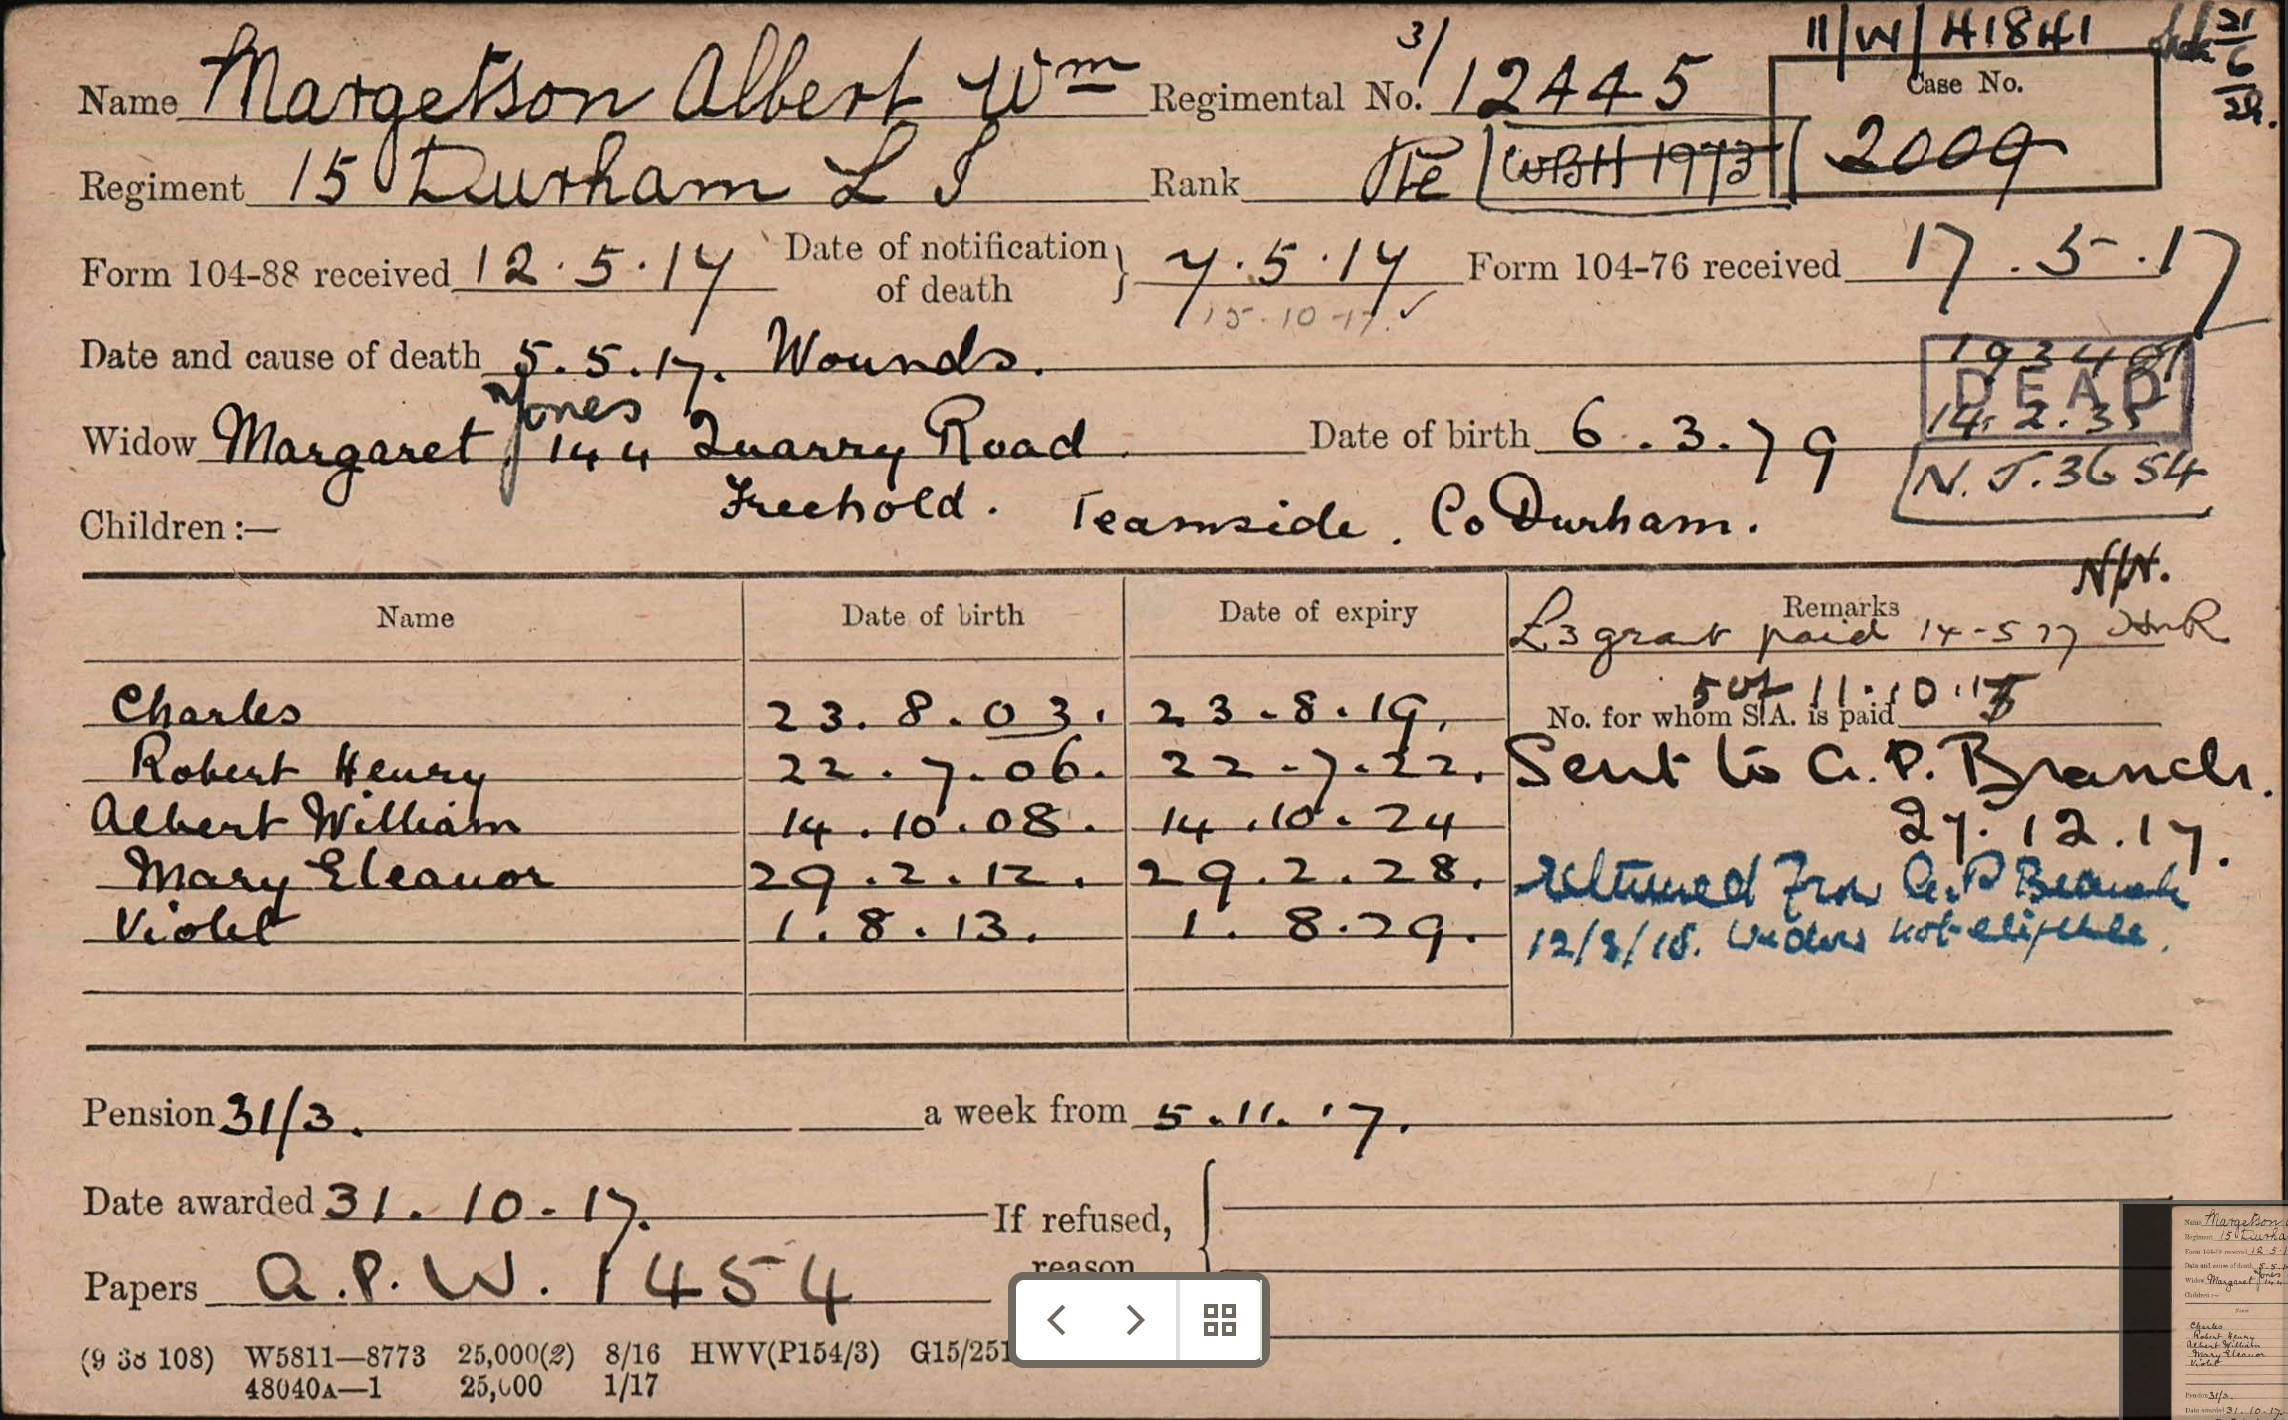 11/W/41841
21
6
28.
Name Margetson Albert Wm Regimental No. 3/12445 Case No.
2009
Regiment 15 Durham L I Rank Pte WBH 1973
Form 104-88 received 12.5.17 Date of notification of death } 7.5.17 Form 104-76 received 17.5.17
15-10-17. ✓
Date and cause of death 5.5.17. Wounds.
DEAD
14.2.35
Widow Margaret Jones 144 Quarry Road Date of birth 6.3.79
N.J.3654
Freehold. Teamside. Co Durham.
Children :—
N/N.
Name Date of birth Date of expiry Remarks
£3 grant paid 14-5 17
Charles 23.8.03. 23-8.19.
No. for whom S.A. is paid 5 of 11.10.17
Robert Henry 22.7.06. 22-7.22. Sent to A.P. Branch.
Albert William 14.10.08. 14.10.24 27.12.17.
Mary Eleanor 29.2.12. 29.2.28. Returned from A.P Branch
Violet 1.8.13. 1.8.29. 12/3/18. Widow not eligible.
Pension 31/3. a week from 5.11.17.
Date awarded 31.10-17. If refused, reason
Papers A.P.W. 1454
(9 38 108) W5811—8773 25,000(2) 8/16 HWV(P154/3) G15/251
48040A—1 25,000 1/17